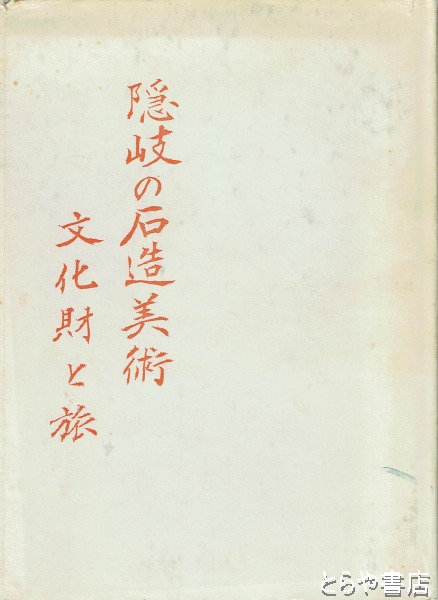 隠岐の石造美術
文化財と旅
とらや書店